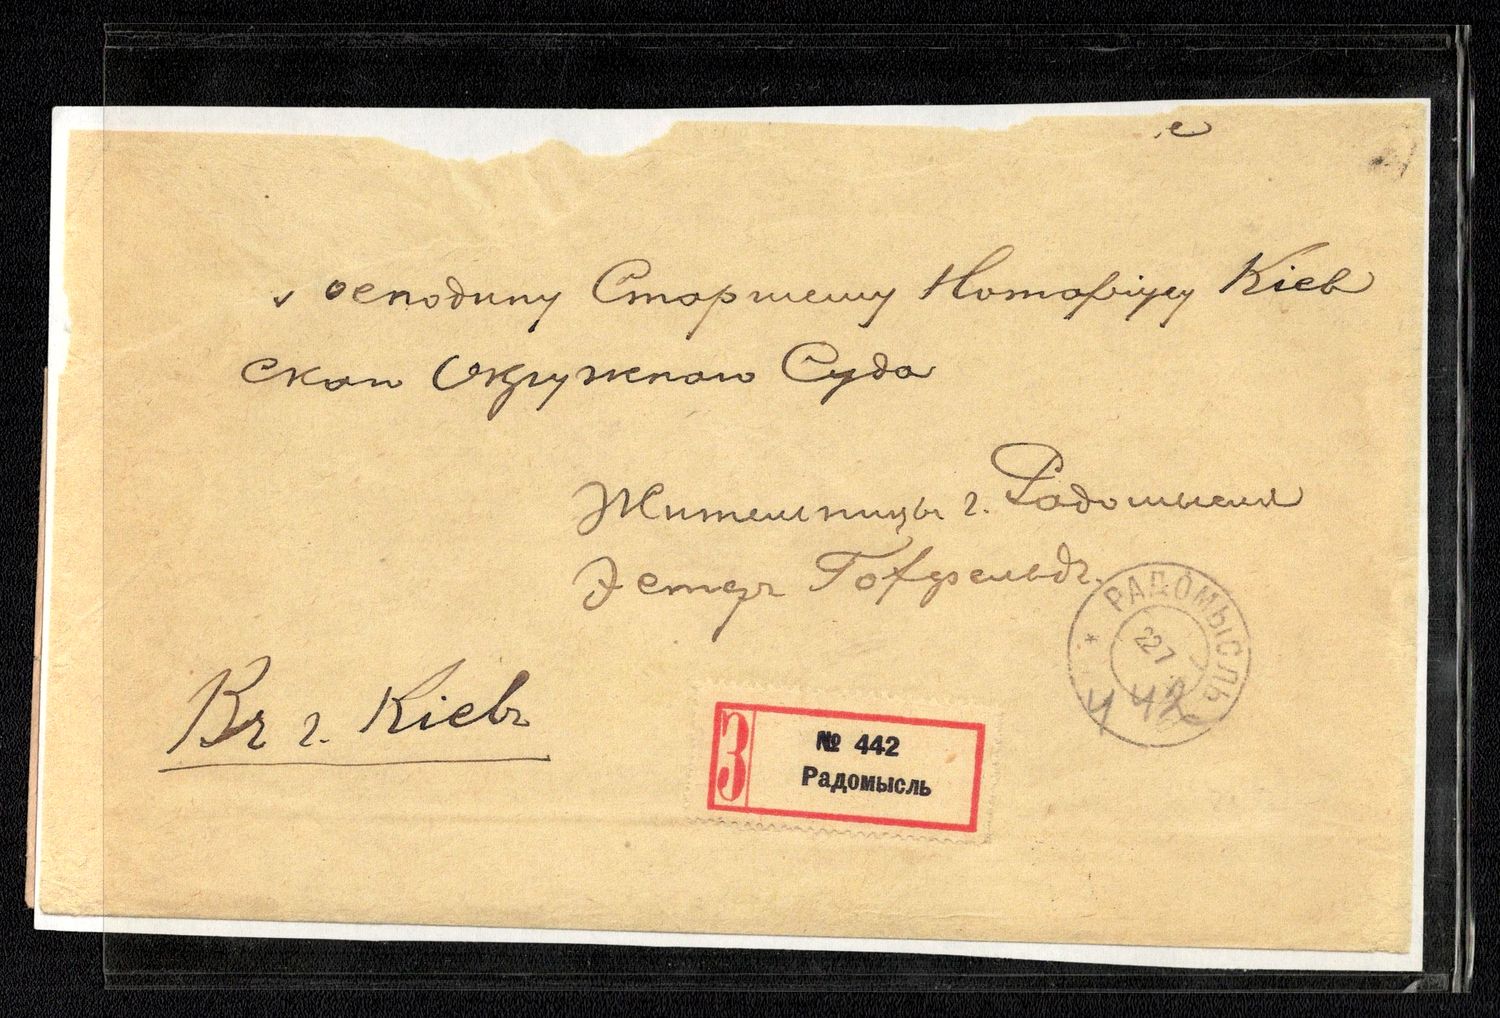 Господину Старшему Нотаріусу Кіев
скаго Окружнаго Суда
Жительницы г. Радомысля
Эстер Гохфельдъ.
Въ г. Кіевъ
РАДОМЫСЛЬ
22 7
442
З
№ 442
Радомысль